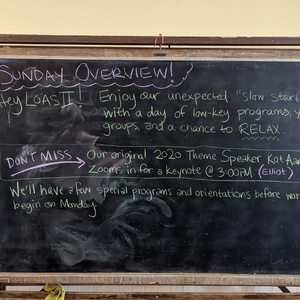 SUNDAY OVERVIEW!
Hey LOAS II! Enjoy our unexpected "slow start
with a day of low-key programs,
groups, and a chance to RELAX.
DON'T MISS Our original 2020 Theme Speaker Kat
Zooms in for a keynote @ 3:00PM (Elliot)
We'll have a few special programs and orientations before
begin on Monday